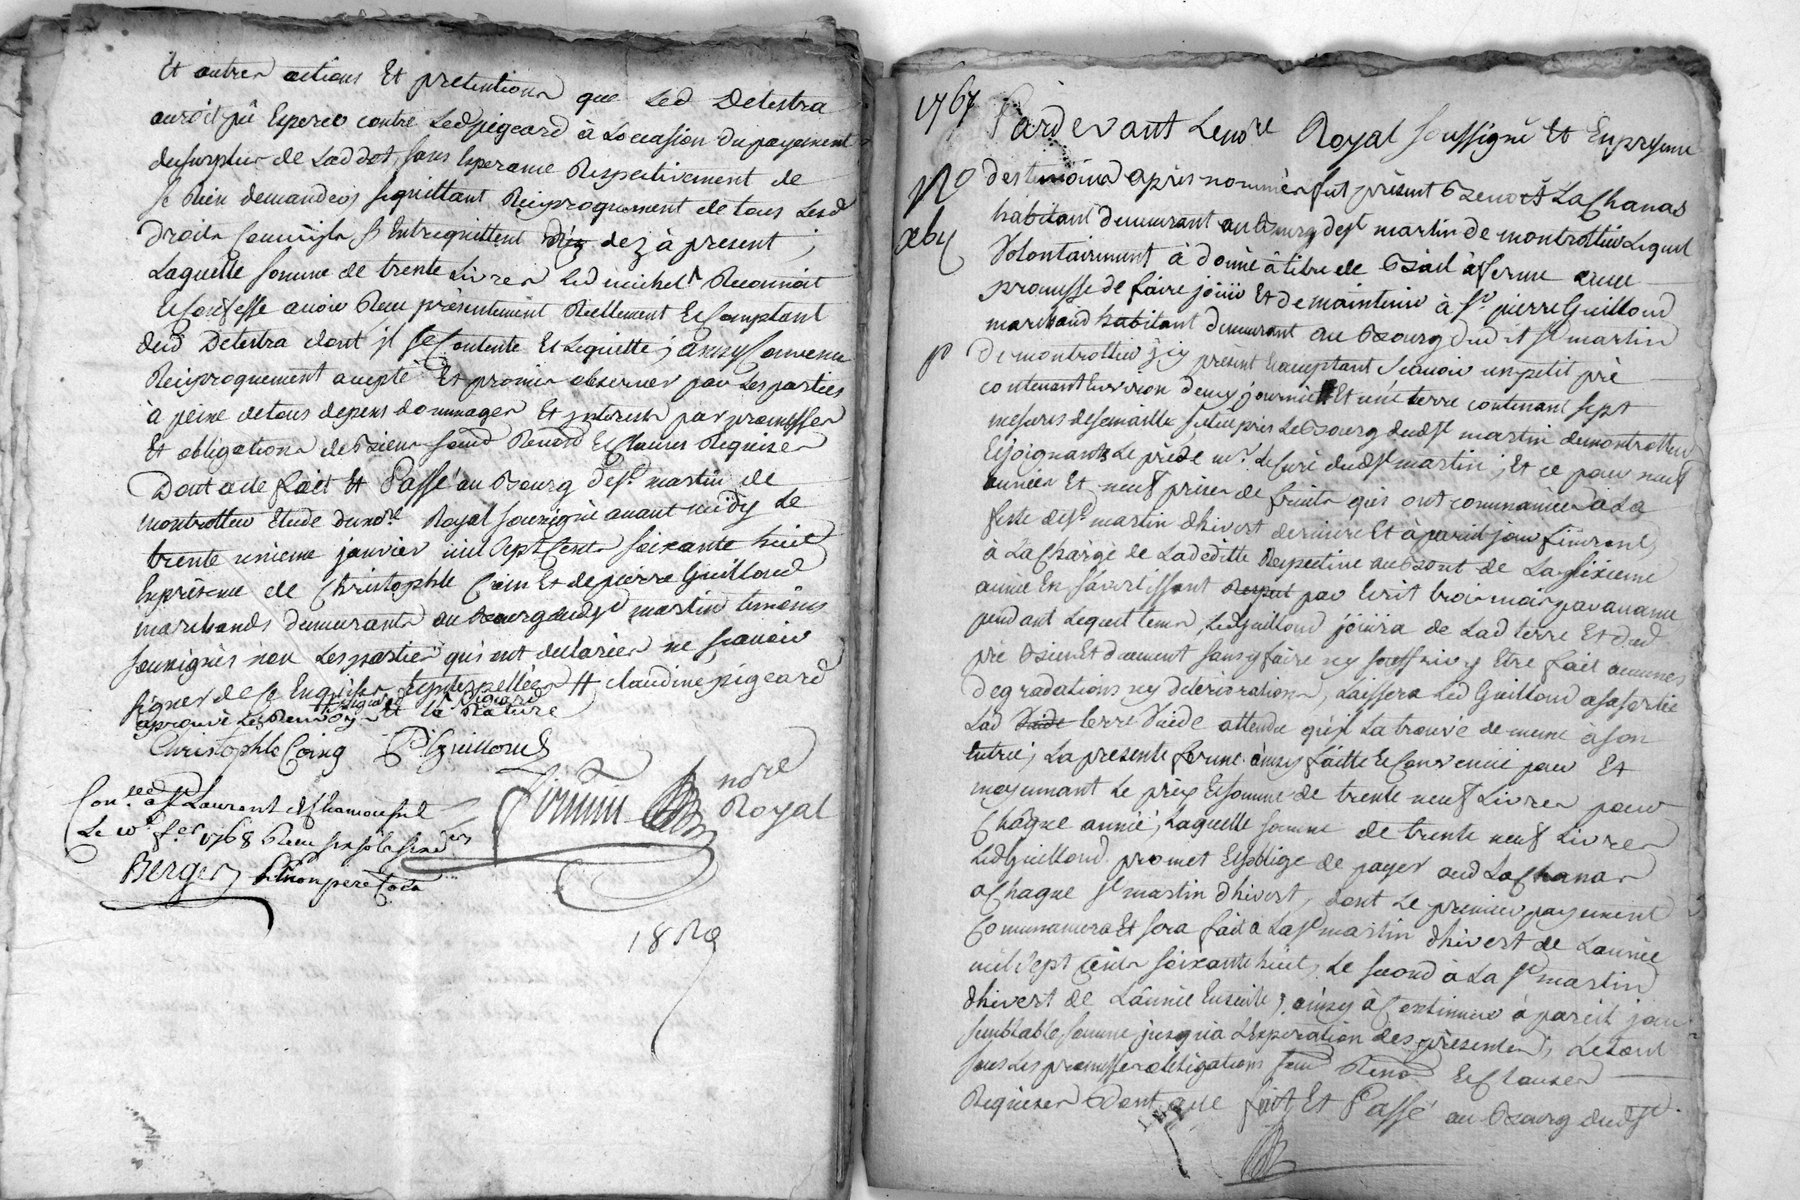 Et autres actions Et pretentions que Led Detestra
auroit pû Esperer contre Ledpigeard à Loccasion du payement
dusurplus de Laddot, sans Esperance Respectivement de
se Rien demander, sequittant Reciproquement de tous Lesd
droits Entrequittent dez à present ;
Laquelle somme de trente Livres Led michel Reconnoit
Et Confesse avoir Reçu présentement Réellement Et Comptant
dud Detestra dont jl se Contente Et Lequitte ; ainsy Convenu
Reciproquement accepté Et promis observer par Les parties
à peine detous depens dommages Et jnterests par promesses
Et obligations de Biens soud Renond Et Clauses Requises
Dont acte fait Et Passé au Bourg de st martin de
montrottier Etude dunore Royal soussigné avant midy Le
trente unieme janvier mil Sept Cents soixante huit
En présence de Christophle Coing Et de pierre Guilloud
marchands demeurants au Bourg dudst martin temoins
soussignés non Les parties qui ont déclarées ne scavoir
signer de ce Enquises Et jnterpellées # claudine pigeard
aprouvé Les Renvoys Et la Rature
Christophle Coing P Guilloud
Firmin nore
Royal
Con. a st Laurent de Chamousset
Le fer 1768 Reçu
Berger
18
1767
Pardevant Lenore Royal soussigné Et En présence
des temoins après nommés fut présent Benoit LaChanas
habitant demeurant au Bourg dest martin de montrottier Lequel
Volontairement à donné à titre de Bail à ferme avec
promesse de faire joüir Et de maintenir à sr pierre Guilloud
marchand habitant demeurant au Bourg dudit st martin
De montrottier jcy présent Eacceptant Scavoir un petit pré
contenant Environ deux journées Et une terre contenant sept
mesures de semaille situé près Le Bourg dudst martin demontrottier
Ejoignants Le pré de mr. Le Curé dudst martin ; Et ce pour neuf
années Et neuf prises de fruits qui ont commancées à La
feste dest martin d'hivert derniere Et à pareil jour finiront
à La Charge de Ladeditte Respective au Bout de La sixieme
année En savertissant par Ecrit trois mois par avance
pendant Lequel tems, Led Guilloud joüira de Lad terre Et dud
pré Bien Et duement sans y faire ny souffrir y Etre fait aucunes
degradations ny deteriorations, Laissera Led Guilloud asasortie
Lad terre Vuide attendu qu'jl La trouvé de meme à son
Entrée ; La presente ferme ainsy faitte Et Convenüe pour Et
moyennant Le prix Et somme de trente neuf Livres pour
Chaque année, Laquelle somme de trente neuf Livres
Led Guilloud promet Et soblige de payer aud LaChanas
a Chaque st martin d'hivert, dont Le premier payement
Commancera Et sera fait a La st martin d'hivert de Lannée
mil sept Cents soixante huit, Le second à La st martin
d'hivert de L'année Ensuite ; ainsy à Continuer à pareil jour
semblable somme jusqu'à L'Experation des présentes ; Letout
sous Les promesses obligations soud Renond Et Clauses
Requises Dont acte fait Et Passé au Bourg dudst